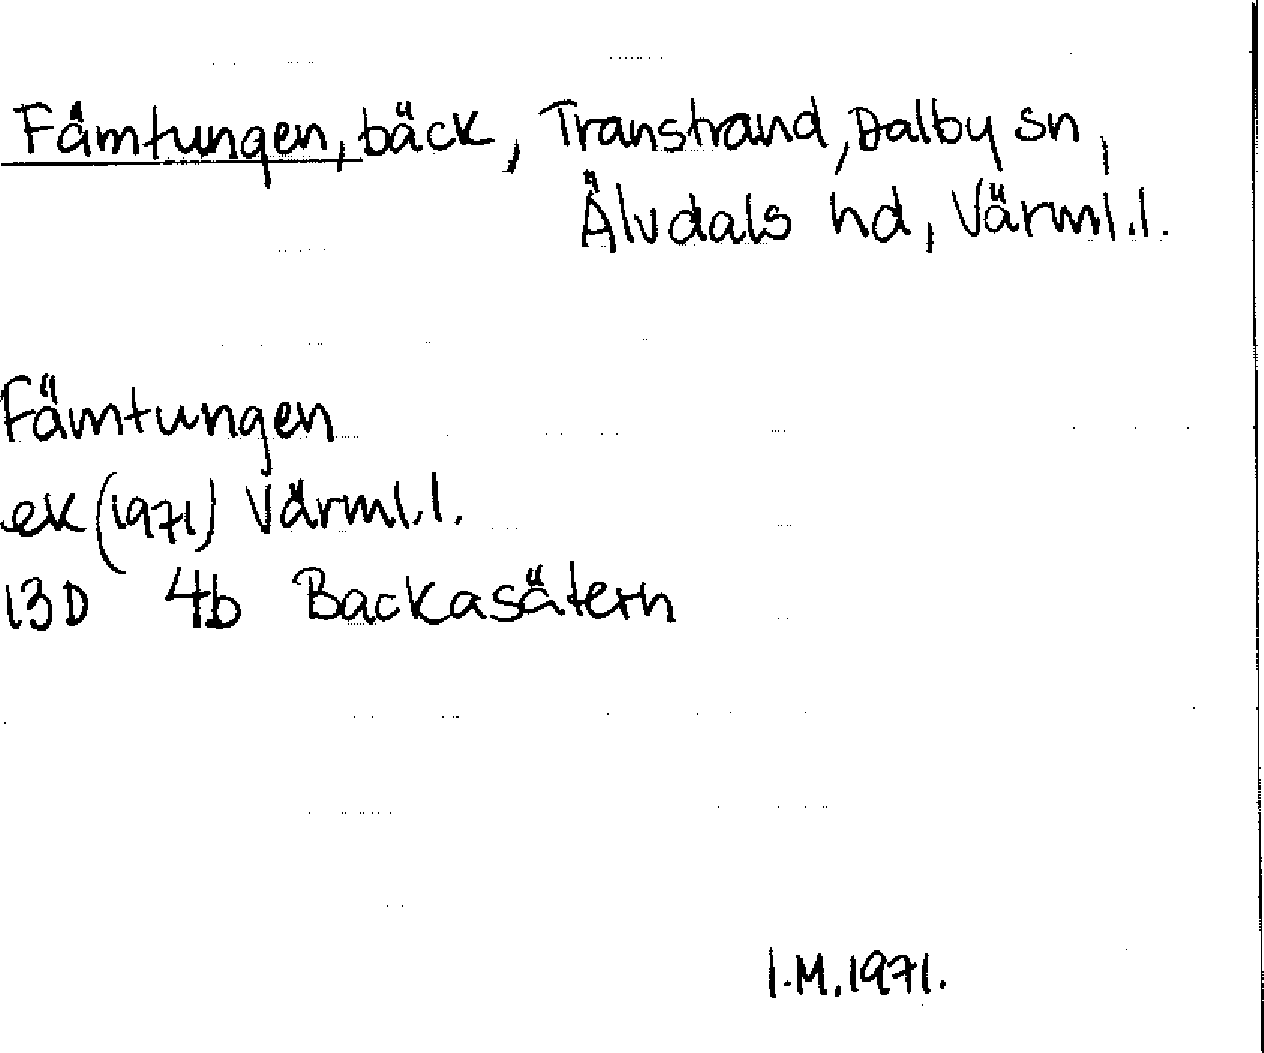 Fämtungen, bäck, Transtrand, Dalby sn,
Älvdals hd, Värml.l.
Fämtungen
ek (1971) Värml.l.
13D 4b Backasätern
I.M. 1971.